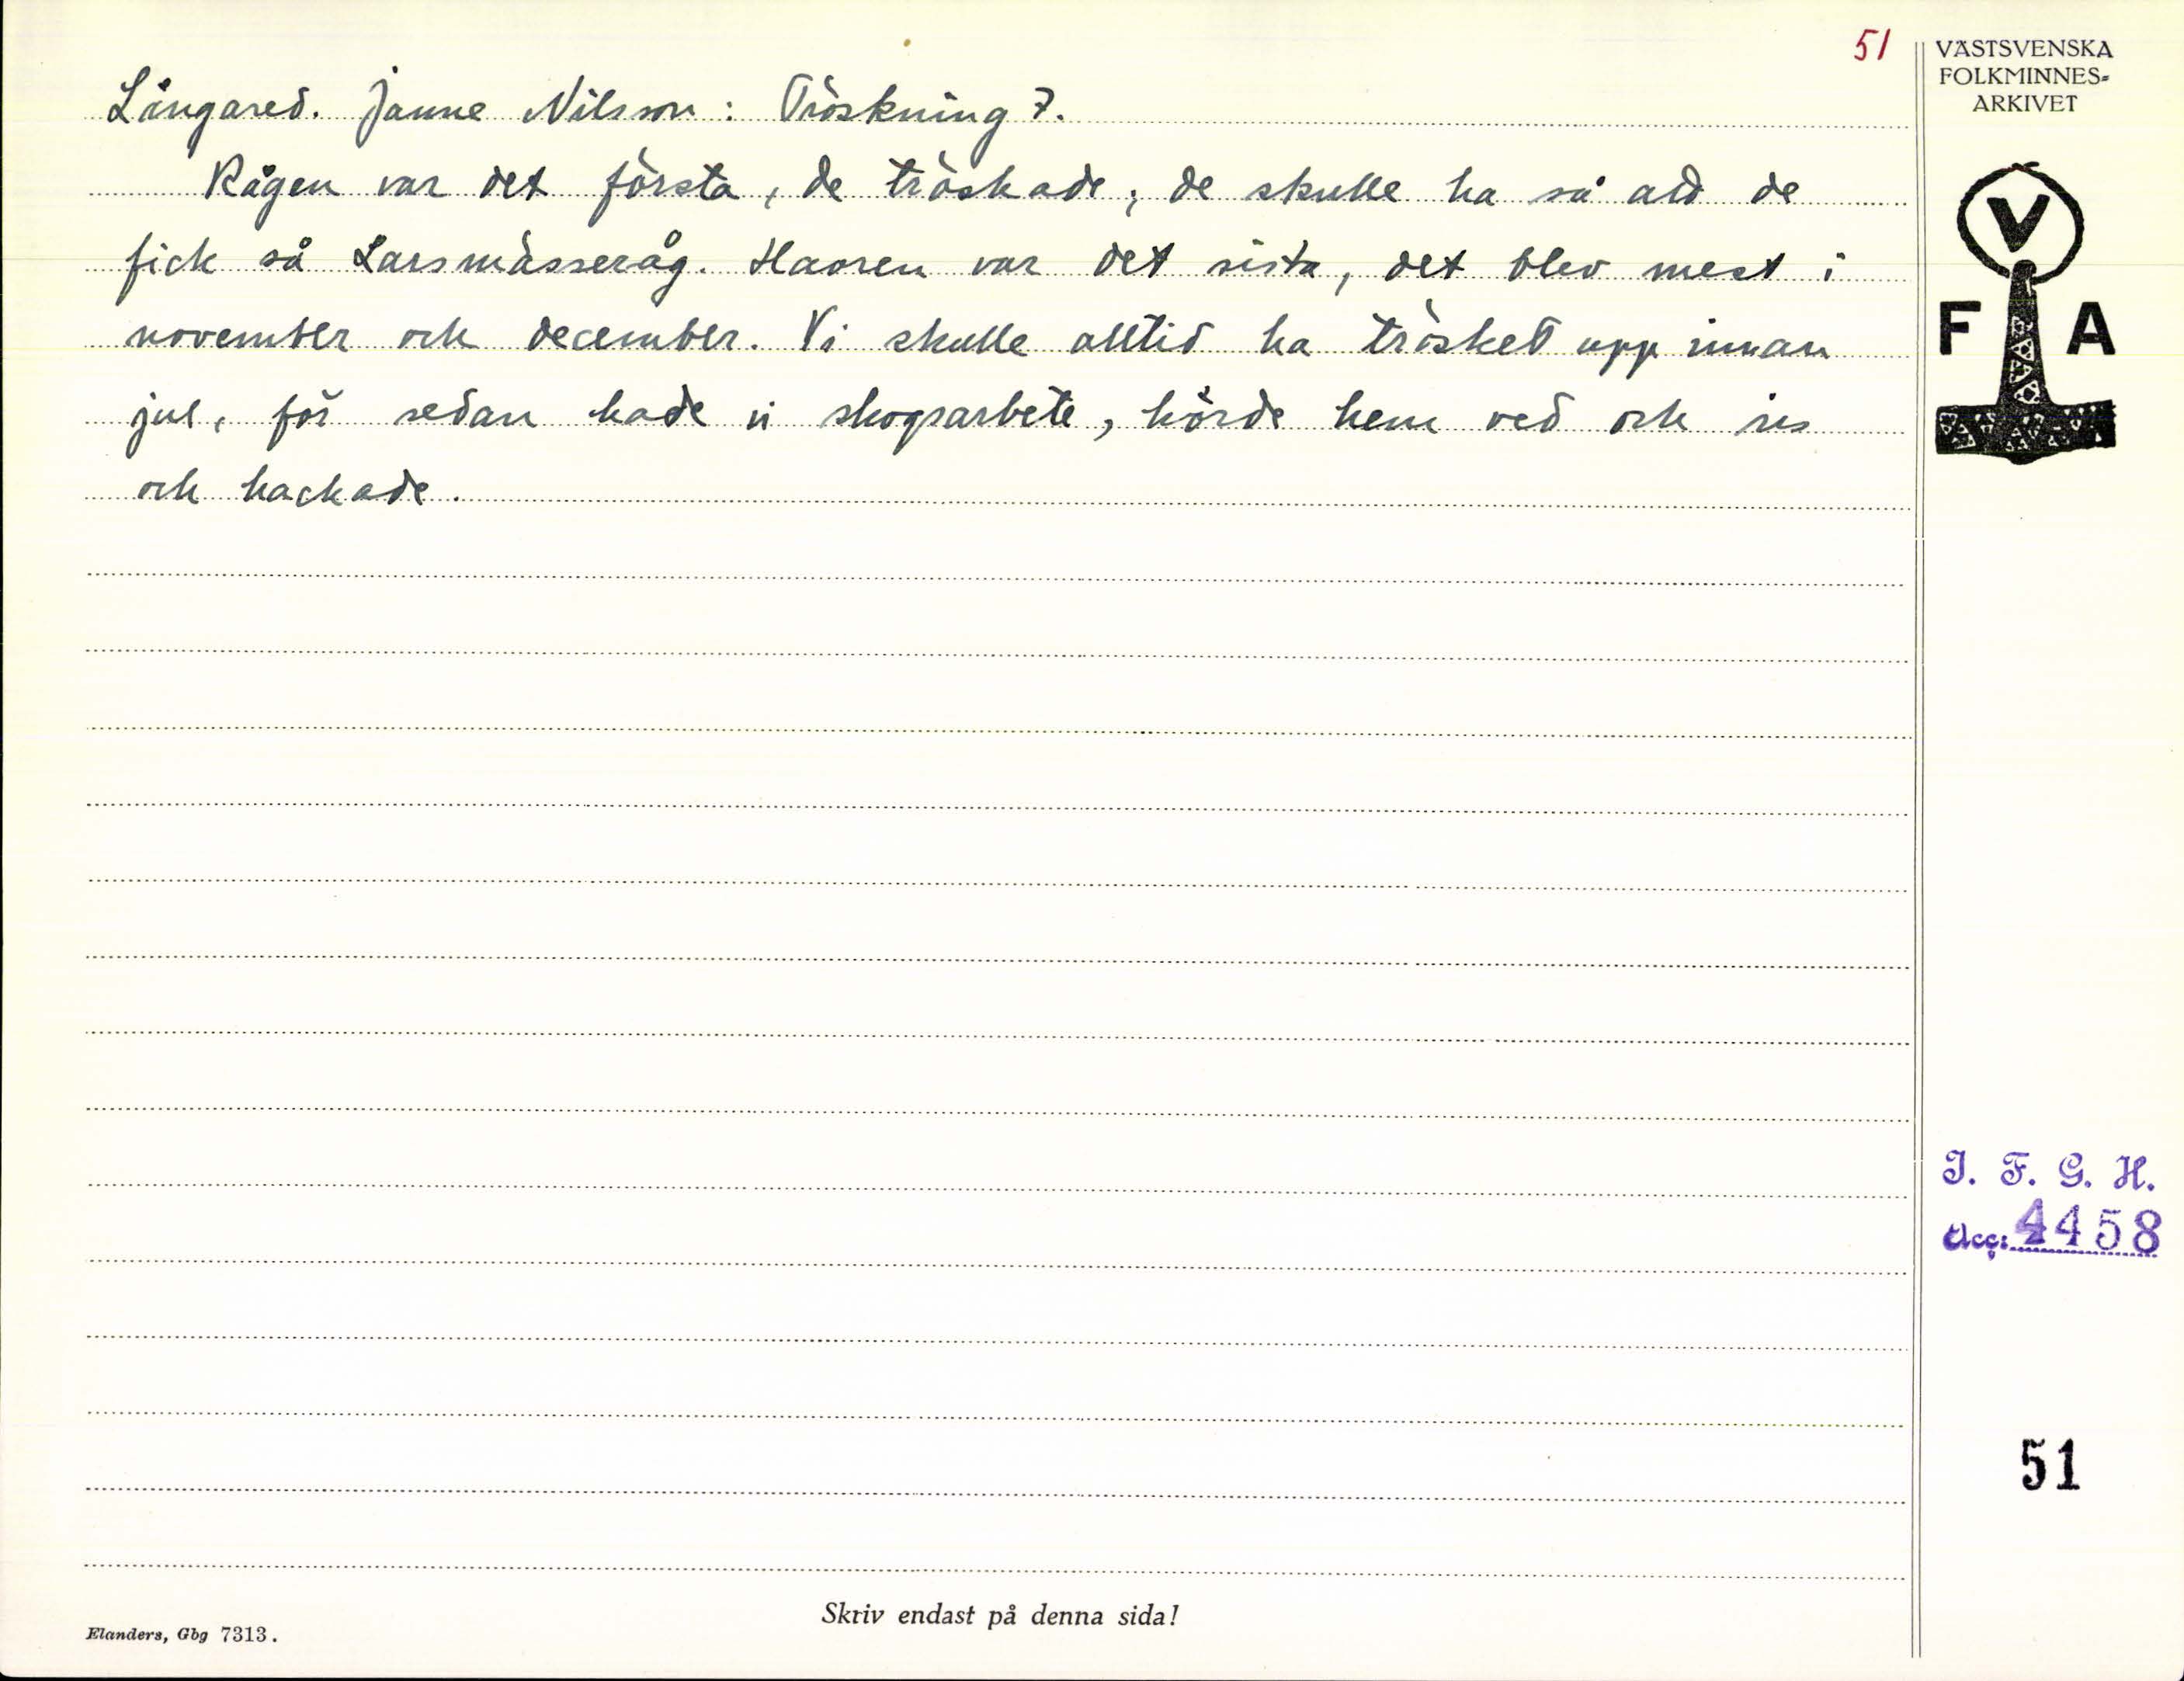 51
VÄSTSVENSKA
FOLKMINNES-
ARKIVET
Långared. Janne Nilsson: Tröskning 7.
Rågen var det första, de tröskade; de skulle ha så att de
fick så Larsmässeråg. Havren var det sista, det blev mest i
november och december. Vi skulle alltid ha trösket upp innan
jul, för sedan hade vi skogsarbete, körde hem ved och ris
och hackade.
V
F A
I. F. G. H.
Acc: 4458
51
Skriv endast på denna sida!
Elanders, Gbg 7313.